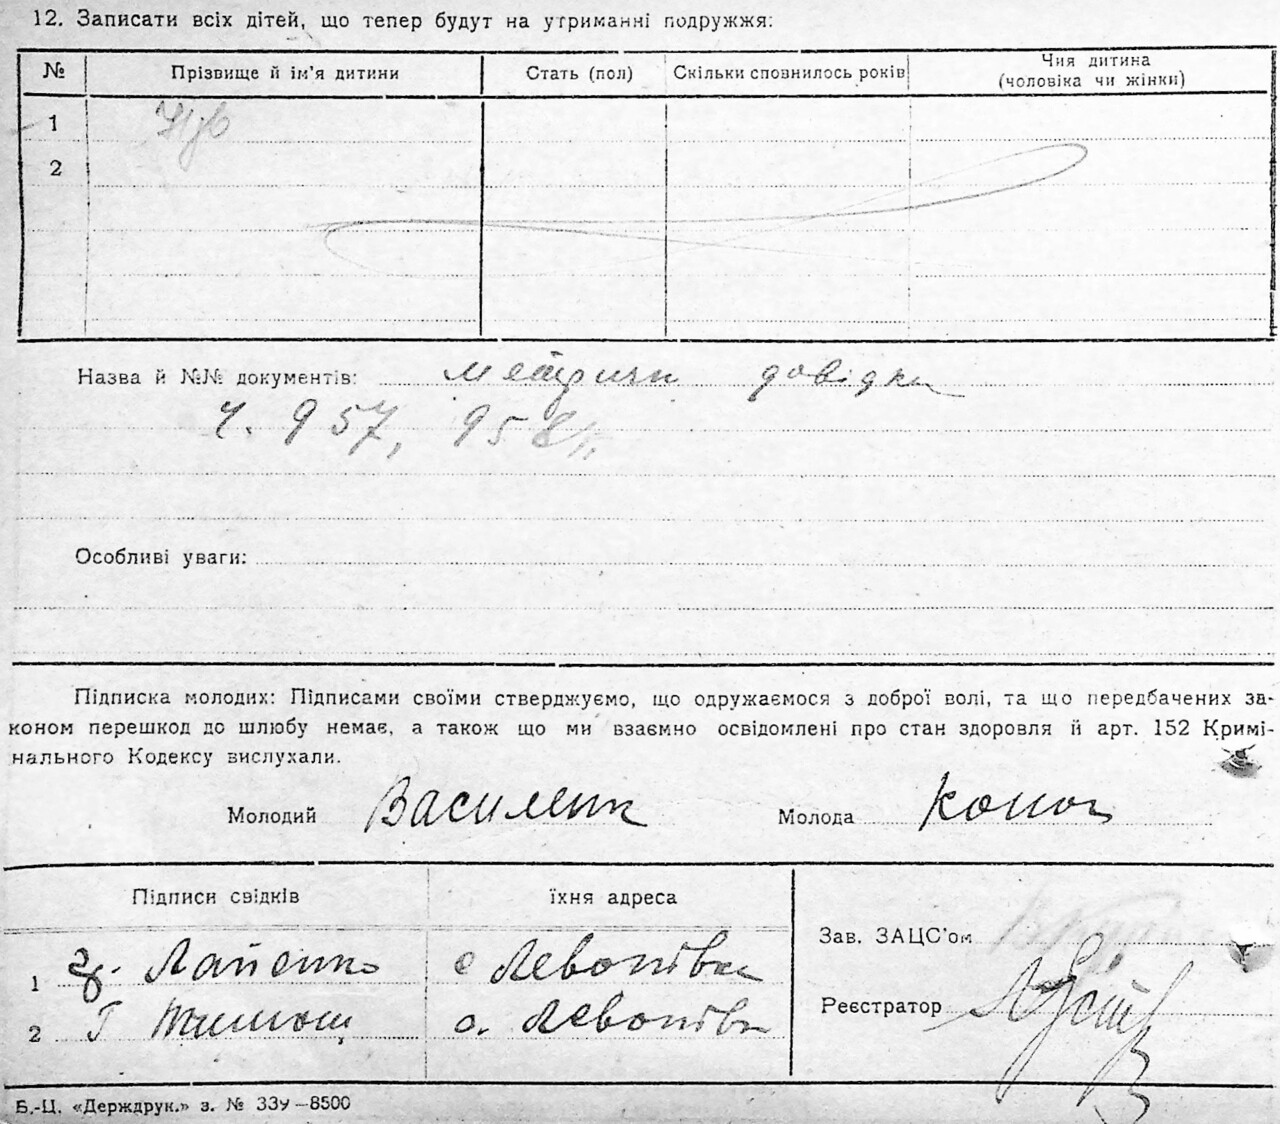 12. Записати всіх дітей, що тепер будут на утриманні подружжя:
№ Прізвище й ім’я дитини Стать (пол) Скільки сповнилось років Чия дитина (чоловіка чи жінки)
1
2
Назва й №№ документів: метрични довідки
ч. 957, 958
Особливі уваги:
Підписка молодих: Підписами своїми стверджуємо, що одружаємося з доброї волі, та що передбачених за-
коном перешкод до шлюбу немає, а також що ми взаємно освідомлені про стан здоровля й арт. 152 Кримі-
нального Кодексу вислухали.
Молодий Василенк Молода
Підписи свідків їхня адреса
Зав. ЗАЦС’ом
1 гр. Лапенко с Левонівка
Реєстратор
2 Г с. Левонівка
Б.-Ц. «Держдрук.» з. № 339—8500